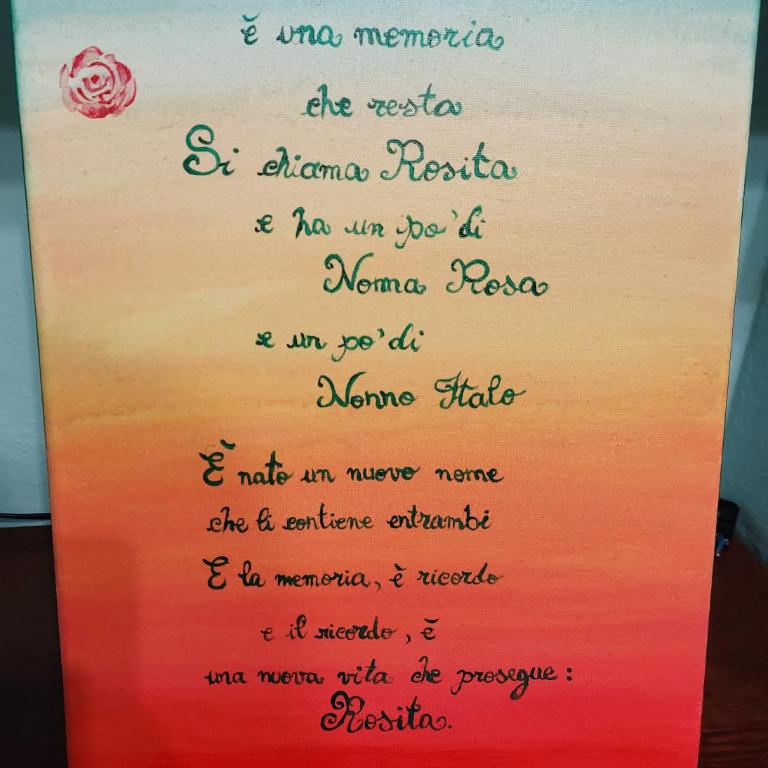 è una memoria
che resta
Si chiama Rosita
e ha un po' di
Nonna Rosa
e un po' di
Nonno Italo
È nato un nuovo nome
che li contiene entrambi
E la memoria, è ricordo
e il ricordo, è
una nuova vita che prosegue:
Rosita.